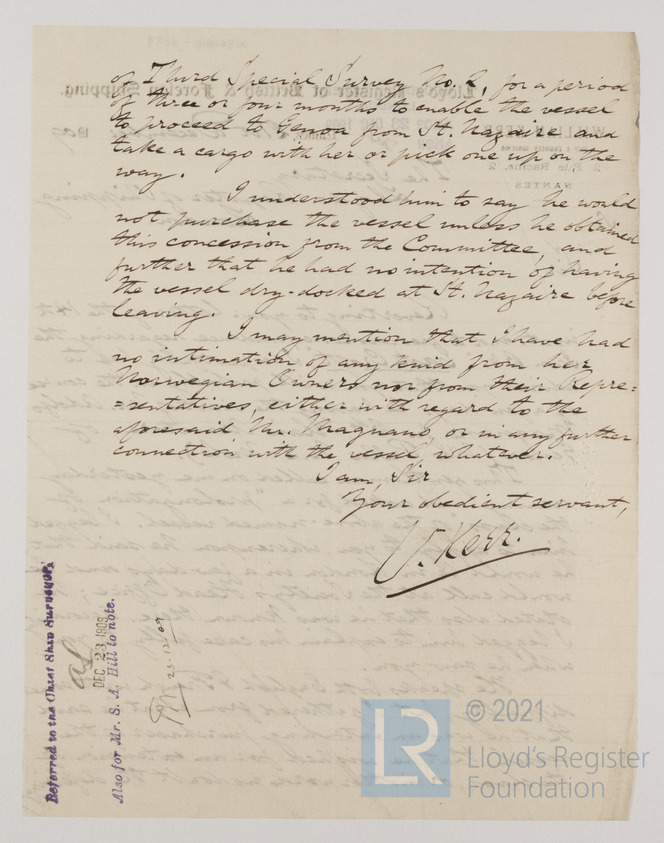 of Third Special Survey No. 2, for a period
of three or four months to enable the vessel
to proceed to Genoa from St. Nazaire and
take a cargo with her or pick one up on the
way.
I understood him to say he would
not purchase the vessel unless he obtained
this concession from the Committee, and
further that he had no intention of having
the vessel dry-docked at St. Nazaire before
leaving.
I may mention that I have had
no intimation of any kind from her
Norwegian Owners nor from their Repre=
=sentatives, either with regard to the
aforesaid Mr. Magnano, or in any further
connection with the vessel, whatever.
I am, Sir
Your obedient servant,
V. Kerr.
Referred to the Chief Ship Surveyor,
DEC 23 1909
Also for Mr. S. A. Hill to note.
23.12.09
LR
© 2021
Lloyd's Register
Foundation